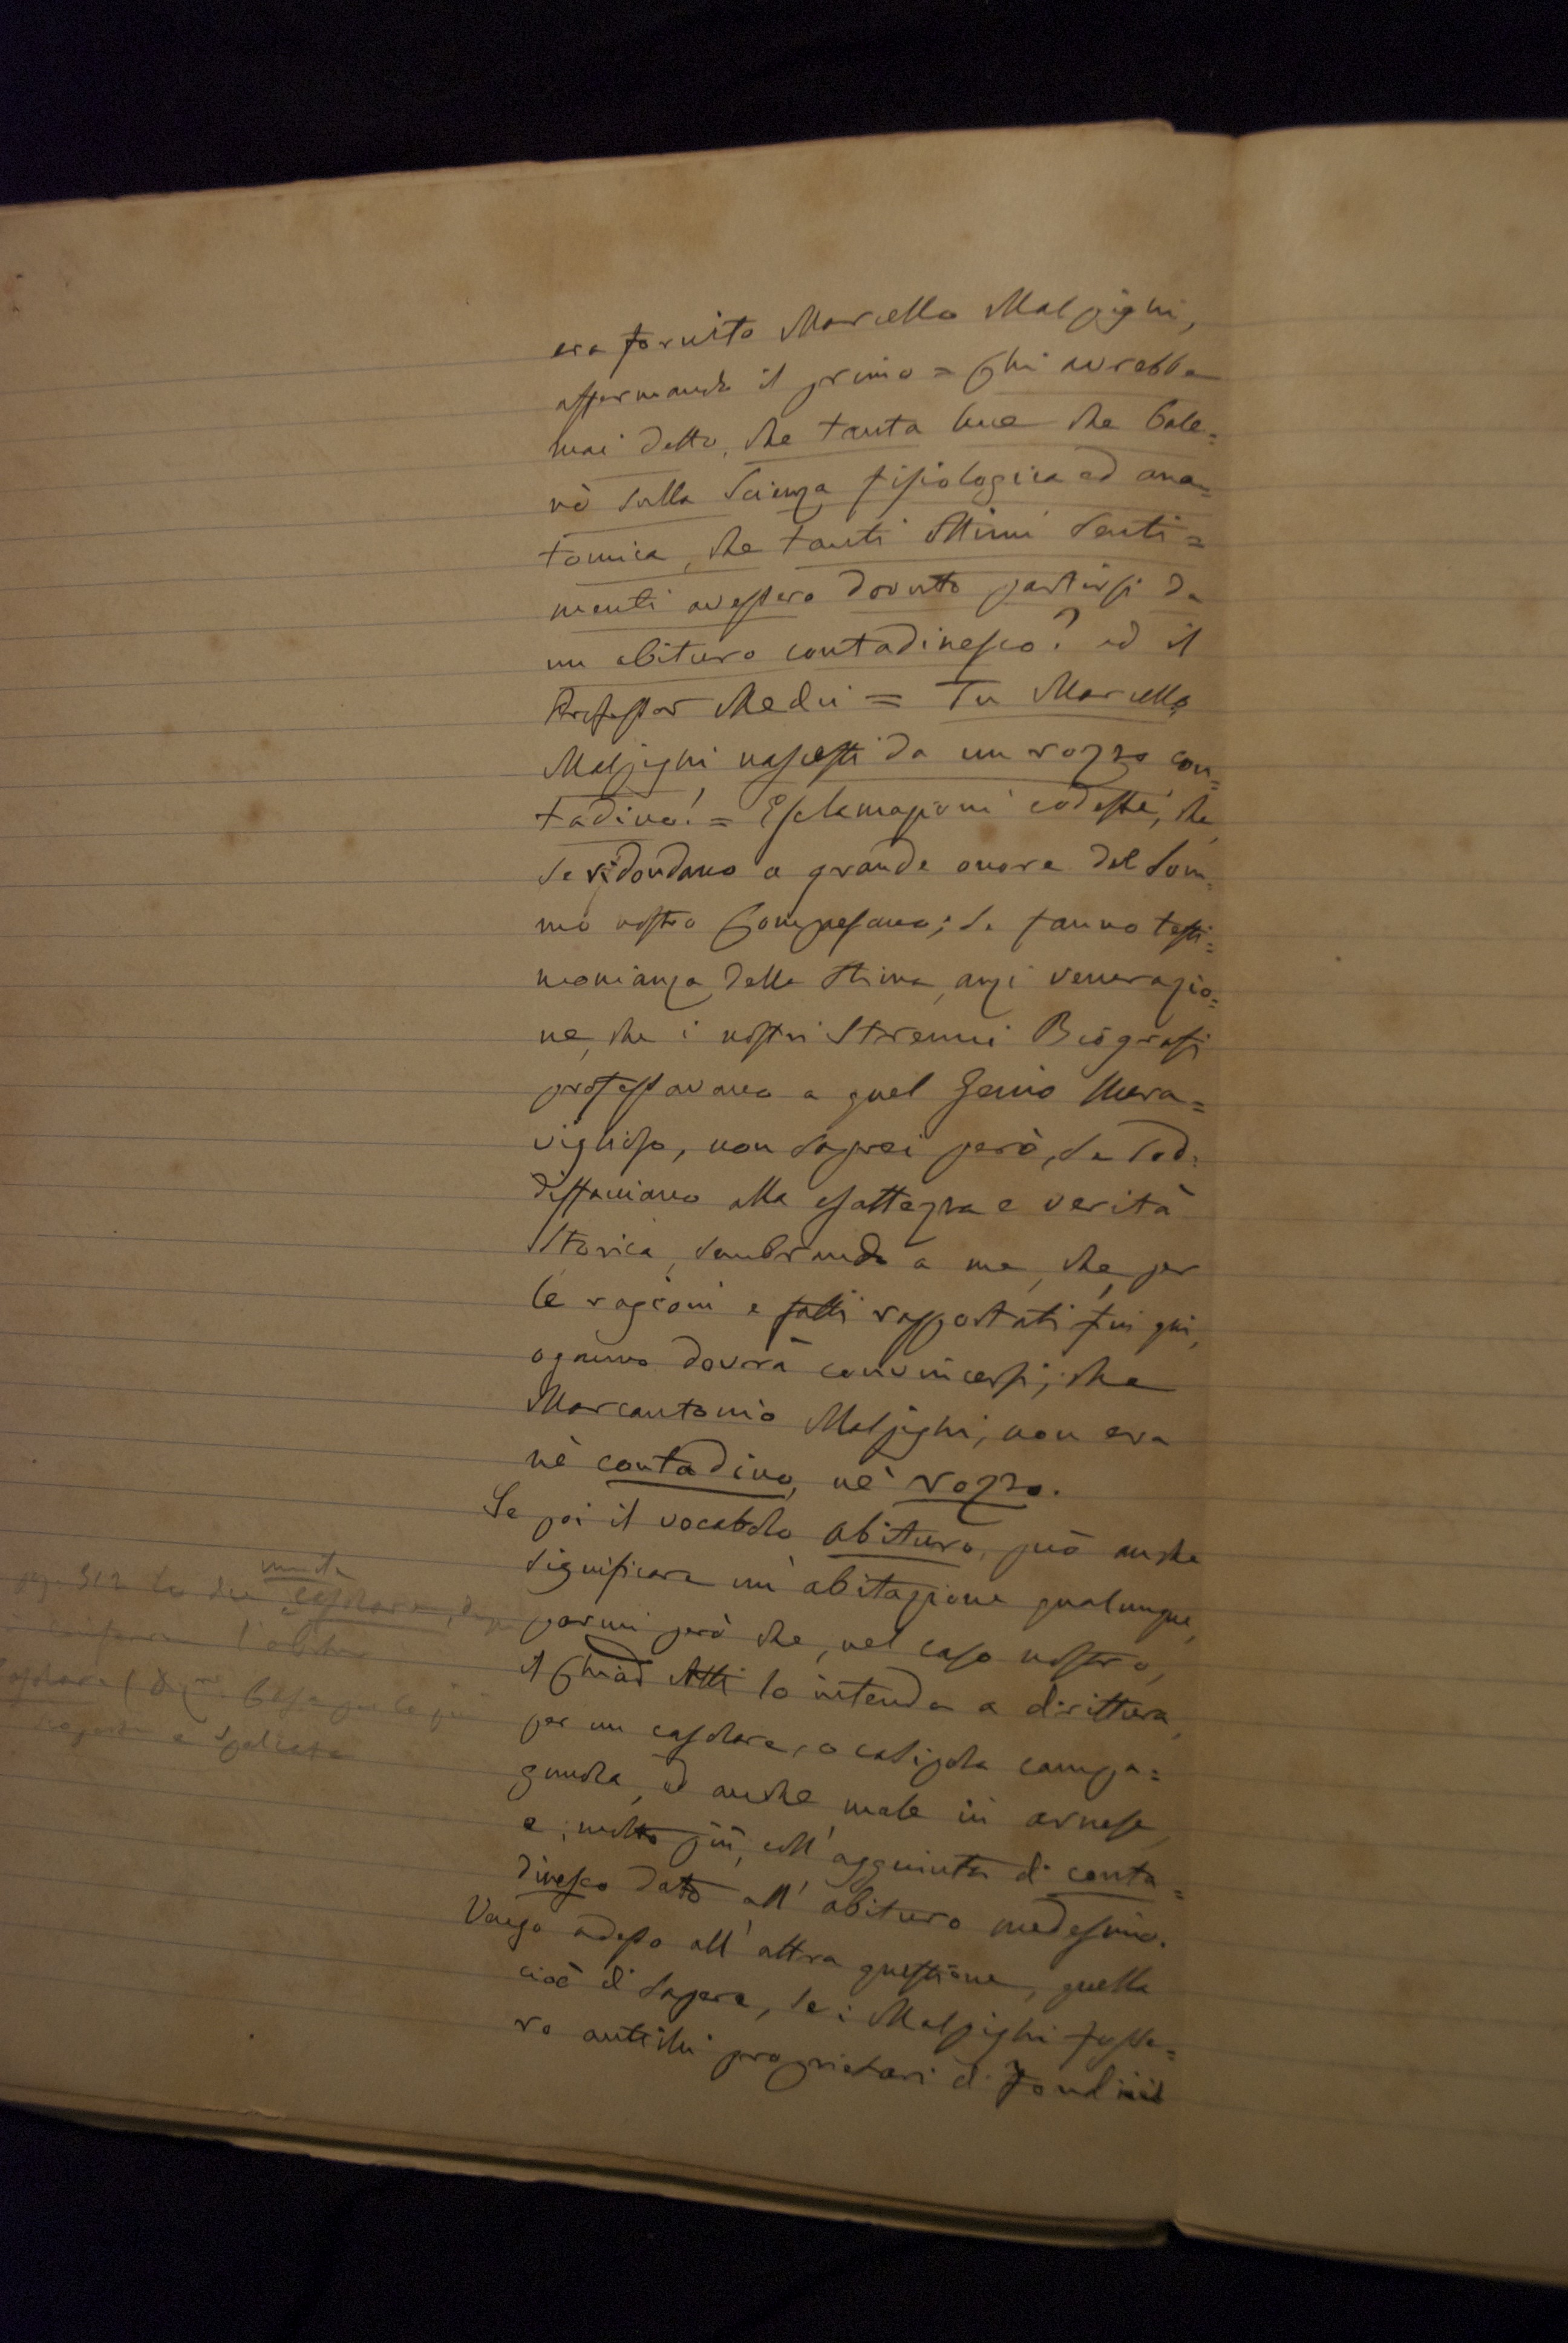 era fornito Marcello Malpighi,
affermando il primo = Chi avrebbe
mai detto, che tanta luce che bale=
nò sulla Scienza fisiologica ed ana=
tomica, che tanti ottimi senti=
menti avessero dovuto partirsi da
un abituro contadinesco? ed il
Professor Medici = Tu Marcello
Malpighi nascesti da un rozzo con=
tadino! = Esclamazioni codeste, che
se ridondano a grande onore del Som=
mo nostro Compesano; se fanno testi=
monianza della stima, anzi venerazio=
ne, che i nostri strenui Biografi
professavano a quel Genio Mera=
viglioso, non saprei però, se sod=
disfacciano alla esattezza e verità
Storica, sembrando a me, che, per
le ragioni e fatti rapportati fin qui,
ognuno dovrà convincersi, che
Marcantonio Malpighi, non era
nè contadino, nè rozzo.
Se poi il vocabolo abituro, può anche
significare un'abitazione qualunque,
parmi però che, nel caso nostro,
il Chiar Atti lo intenda a dirittura,
per un casolare, o casipola campa=
gnuola, ed anche male in arnese,
e, molto più, coll'aggiunta di conta=
dinesco dato all'abituro medesimo.
Vengo adesso all'altra questione, quella
cioè di sapere, se i Malpighi fosse=
ro antichi proprietari di fondi
pag. 312 lo dice casolare,
l'abituro
casolare
e